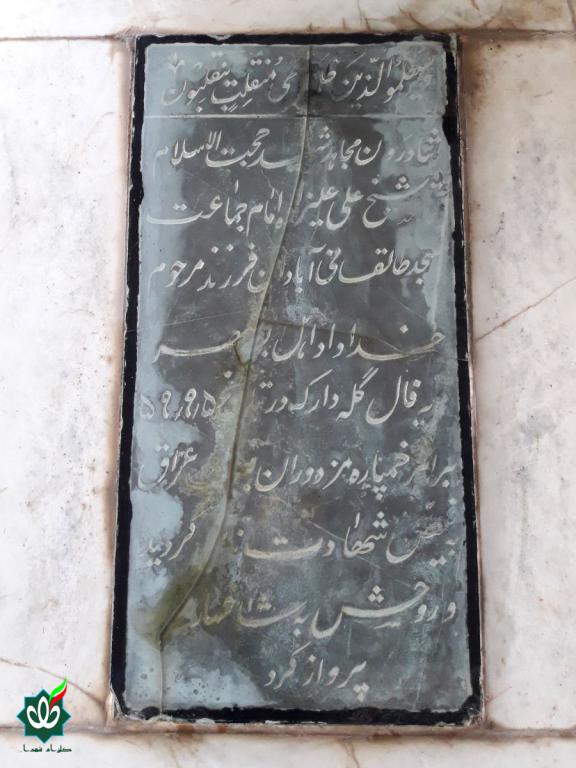 سیعلموا الذین ظلموا ای منقلبٍ ینقلبون
شادروان مجاهد شهید حجت الاسلام
شیخ علی علیزاده امام جماعت
مسجد طالقانی آبادان فرزند مرحوم
خداداد اهل
گله دار که در تاریخ ۵۹٫۹٫۵
براثر خمپاره مزدوران عراق
به فیض شهادت نائل گردید
و روحش به شاخسار
پرواز کرد
گلزار شهدا